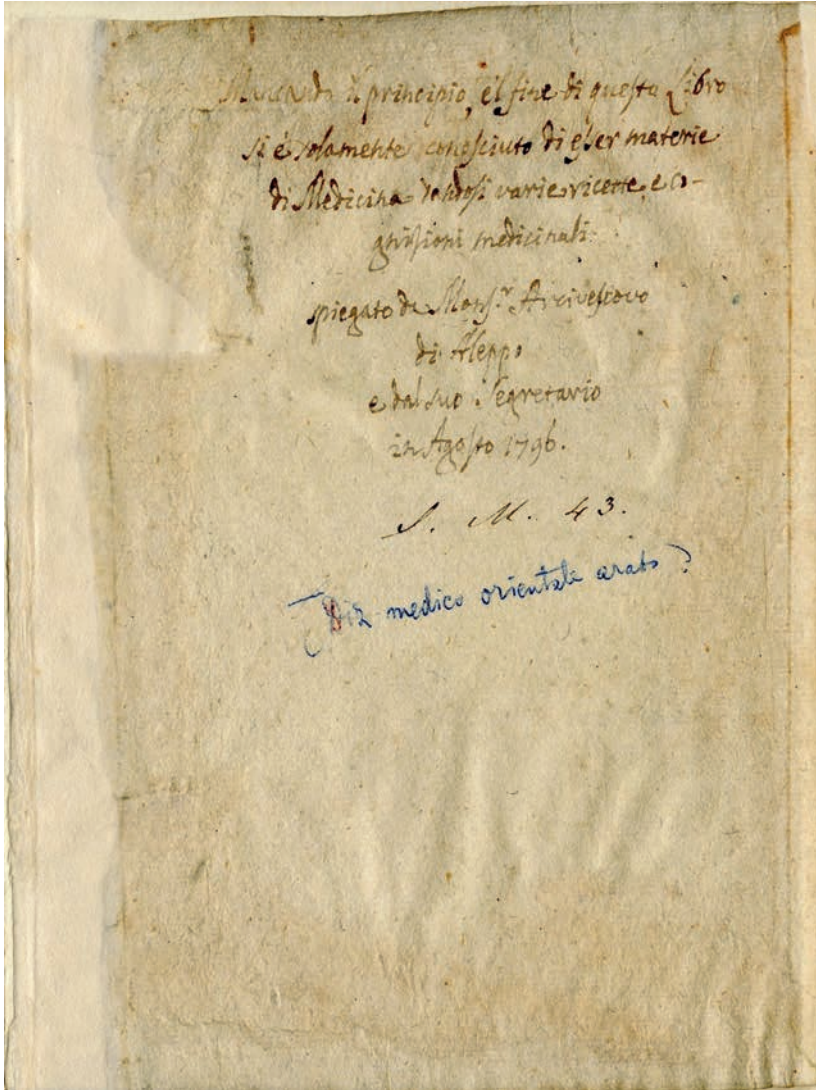 Mancando il principio, e il fine di questo Libro
si è solamente conosciuto di esser materie
di Medicina dandosi varie ricette, e co-
gnizioni medicinali.
spiegato da Mons.r Arcivescovo
di Aleppo
e dal suo Segretario
in Agosto 1796.
S. M. 43.
medico orientale arabo ?